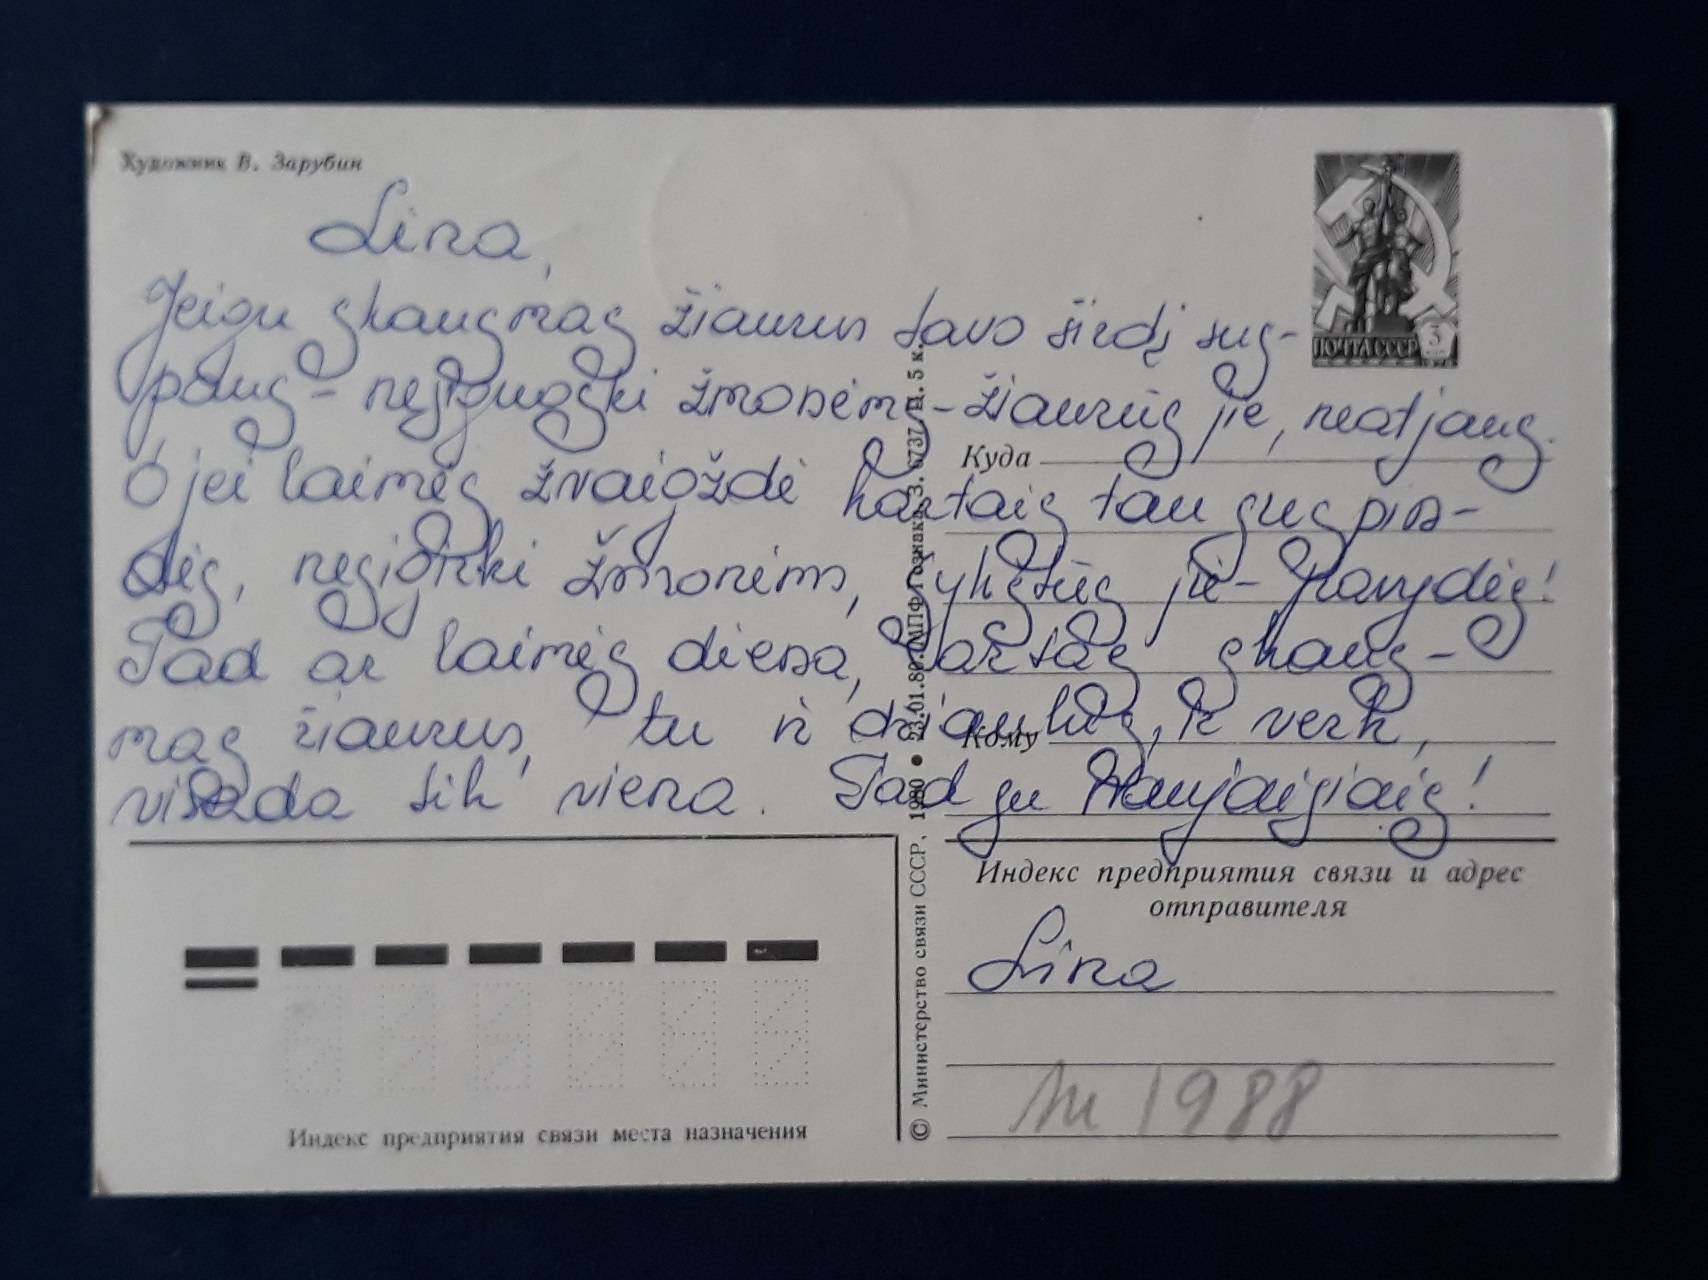 Художник В. Зарубин
Lina,
Jeigu skausmas žiaurus tavo širdį sus-
paus - nesiguoski žmonėms - žiaurūs jie, neatjaus.
O jei laimės žvaigždė kartais tau suspin-
dės, nesidžiauk žmonėms, šykštūs jie - pavydės!
Tad ar laimės diena, ar tas skaus-
mas žiaurus, tu ir džiaukis, ir verk,
visada tik viena. Tad su Naujaisiais!
ПОЧТА СССР 3
Куда
Кому
© Министерство связи СССР. 1980 • 23.01.80. МПФ Гознака. З. 6737. Ц. 5 к.
Индекс предприятия связи и адрес
отправителя
Lina
1988
Индекс предприятия связи места назначения